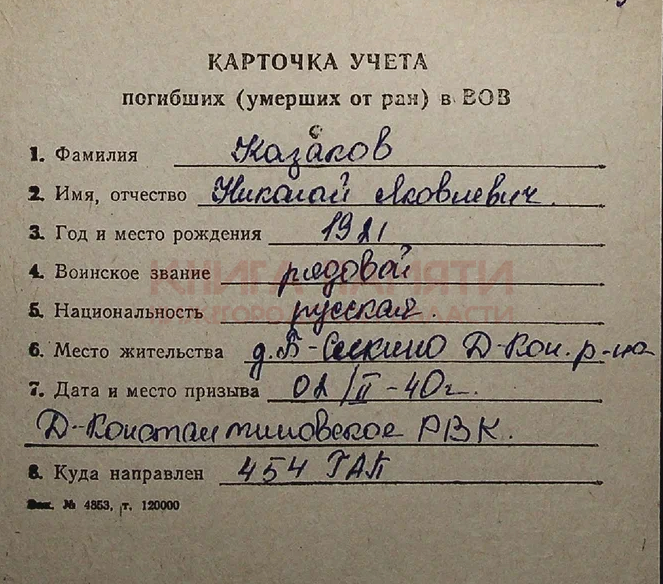 КАРТОЧКА УЧЕТА
погибших (умерших от ран) в ВОВ
1. Фамилия Казаков
2. Имя, отчество Николай Яковлевич.
3. Год и место рождения 1921
4. Воинское звание рядовой
5. Национальность русская.
6. Место жительства д. Б-Сескино Д-Кон. р-на
7. Дата и место призыва 02/II-40г.
Д-Константиновское РВК.
8. Куда направлен 454 ГАП
Зак. № 4853, т. 120000
КНИГА ПАМЯТИ
НИЖЕГОРОДСКОЙ ОБЛАСТИ